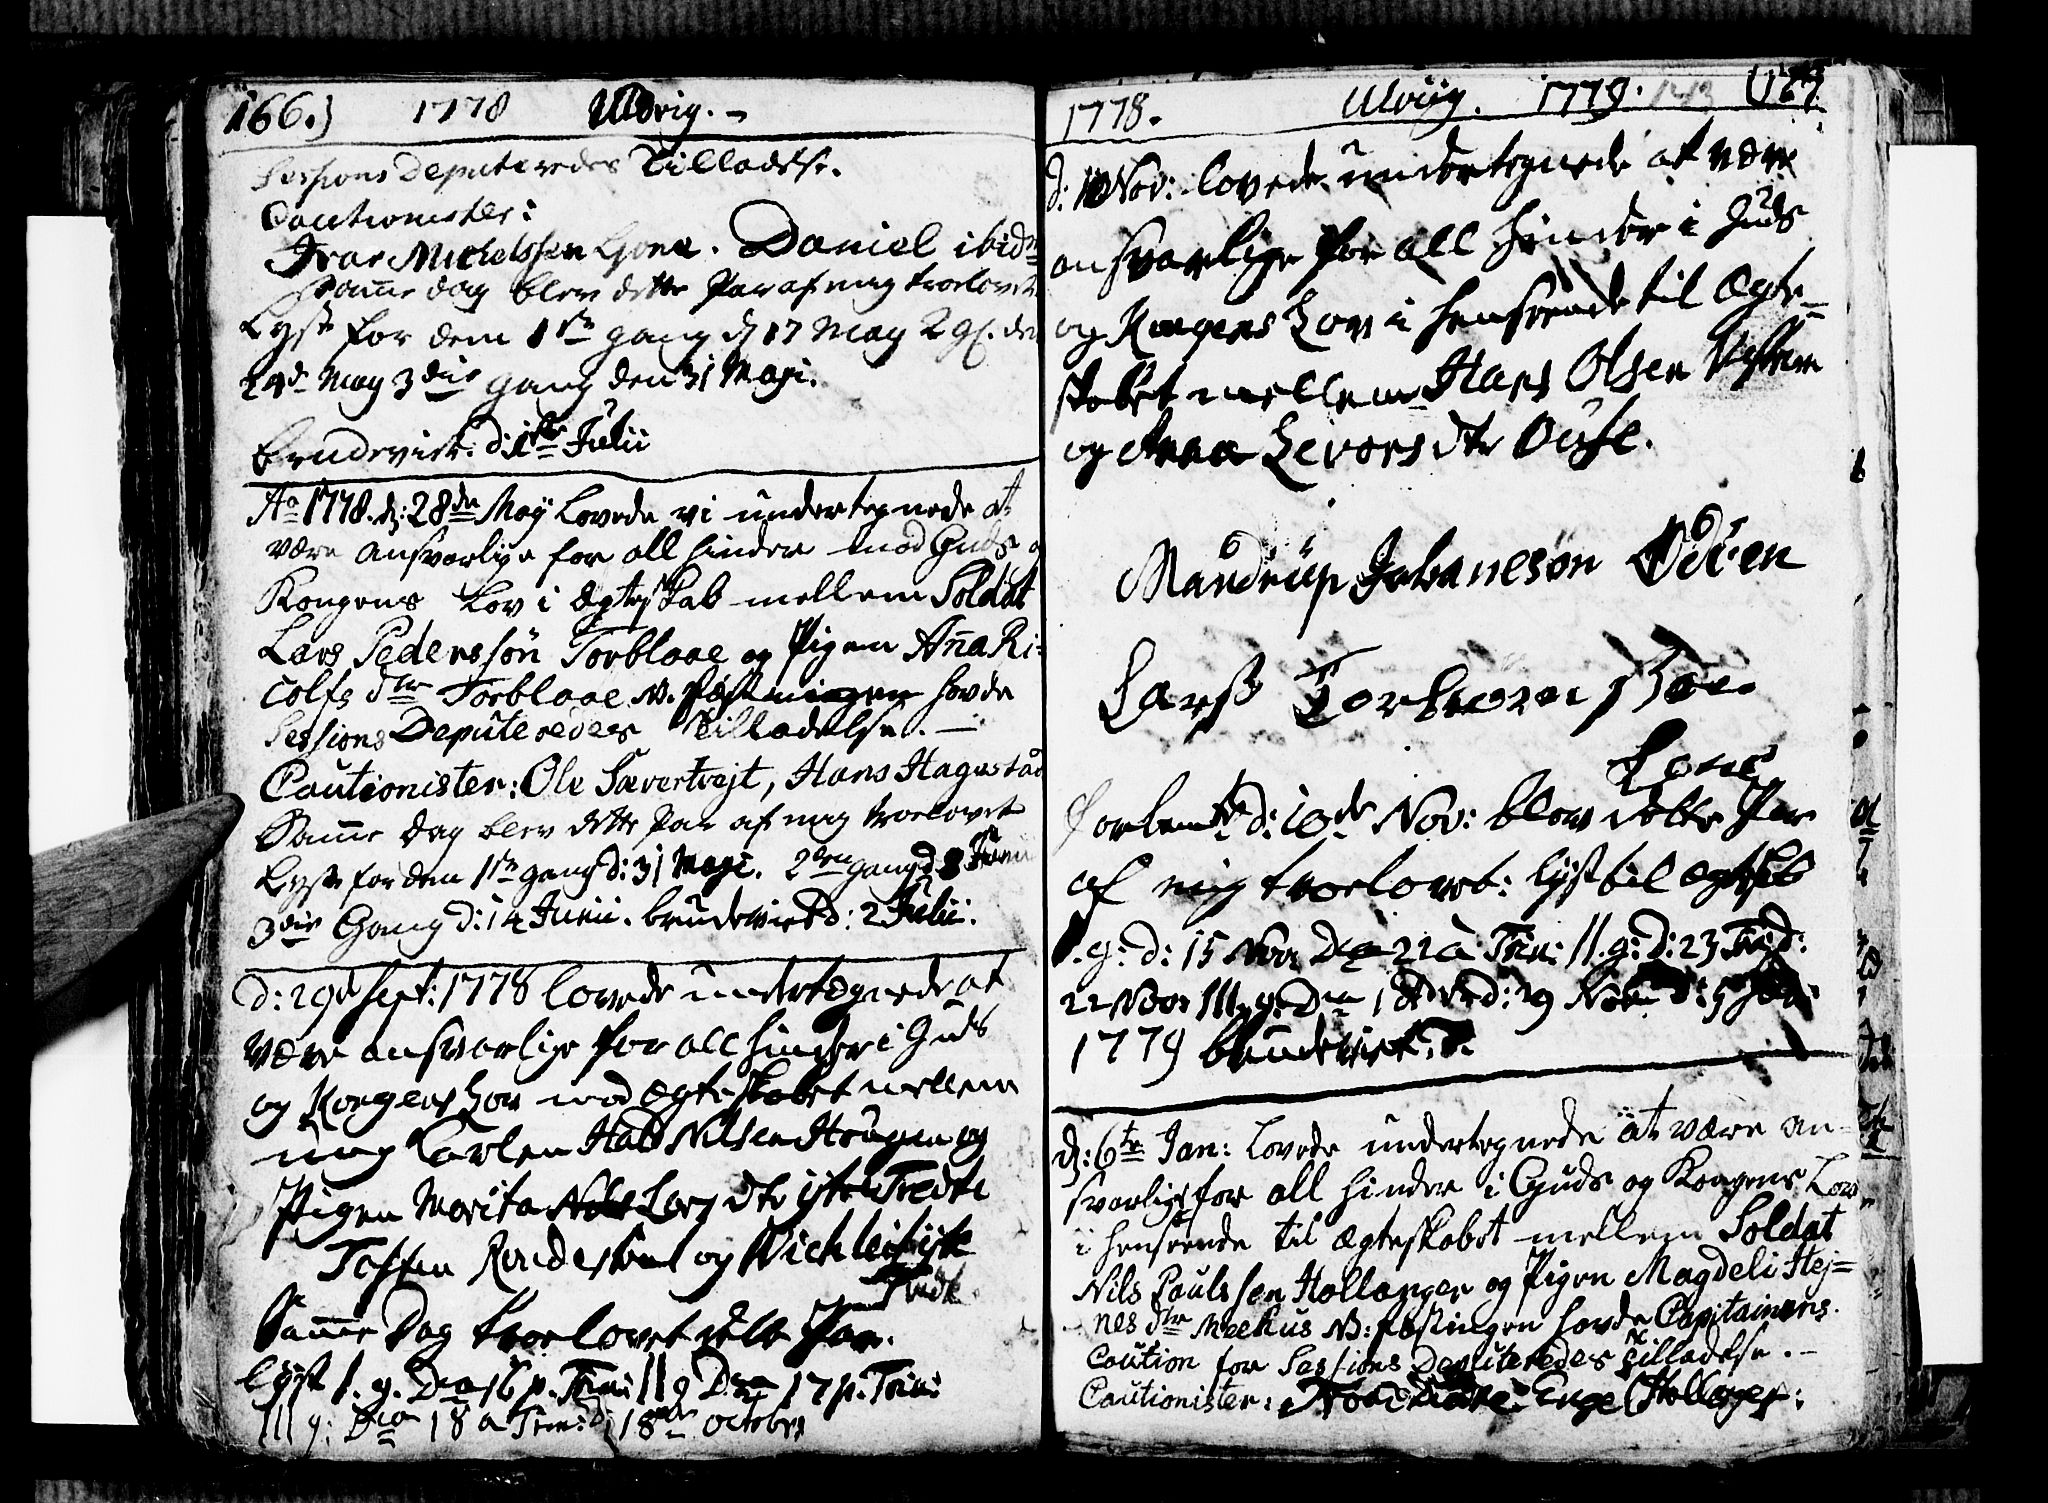 166.) 1778 Ulvig. -
Sessions Deputeredes Tilladelse.
Cautionister:
Ivar Michelssen Lione. Daniel ibidm
Samme dag blev dette Par af mig troelovet
Lyst for dem 1ste gang d 17 May 2 g. den
24de May 3die gang den 31 Maji.
Brudeviet. d: 1ste Julii
Ao 1778. d: 28de Maij Lovede vi undertegnede at
være ansvarlige for all hinder mod Guds o
Kongens Lov i Ægteskab mellem Soldat
Lars Pederssøn Torblaae og Pigen Anna Ri-
colfs dtr Torblaae NB. Fæstningen hovde
Sessions Deputeredes Tilladelse. -
Cautionister: Ole Sævertvejt, Hans Hagestad
Samme Dag blev dette Par af mig troelovet
Lyst for dem 1ste gang d: 31 Maji. 2den gang d: Junii
3die Gang d: 14 Junii. brudeviet d: 2 Julii.
d: 29d Sept: 1778 lovede undertegnede at
være ansvarlige for all hinder i Guds
og Kongens Lov mod Ægteskabet mellem
ung Karlen Nilsen Hougen og
Pigen Marita Lars dtr Tredte
og
Samme Dag troelovet dette Par.
lyst I. g. Dca 16 p. Trin: II g Dca 17 p. Trin:
III g: Dca 18 a Trin: d: 18de October
1778. Ulviig. 1779. (167
d: 10 Nov: lovede undertegnede at være
ansvarlige for all hinder i Guds
og Kongens Lov i henseende til Ægte-
skabet mellem Hans Olsen
og Anna Levors dtr Ouse.
Mandrup Johanesøn Ødven
Larss
Lone
d: 10de Nov: blev dette Par
af mig troelovet: lyst til Ægtsk
I. g: d: 15 Nov. Dca 22 a Trin: II. g: d: 23 Trin d:
22 Nov: III. g: Dca 1 Adv: d: 29 Nov: d: 5
1779 brudeviet.
d: 6te Jan: Lovede undertegnede at være an-
svarlige for all hinder i Guds og Kongens Lov
i henseende til Ægteskabet mellem Soldat
Nils Paulssen Hollanger og Pigen Magdeli Hej-
nes dtr Meehus NB: fæstingen hovde Capitainens
Caution for Sessions Deputeredes Tilladelse. -
Cautionister: Enge Hollanger: